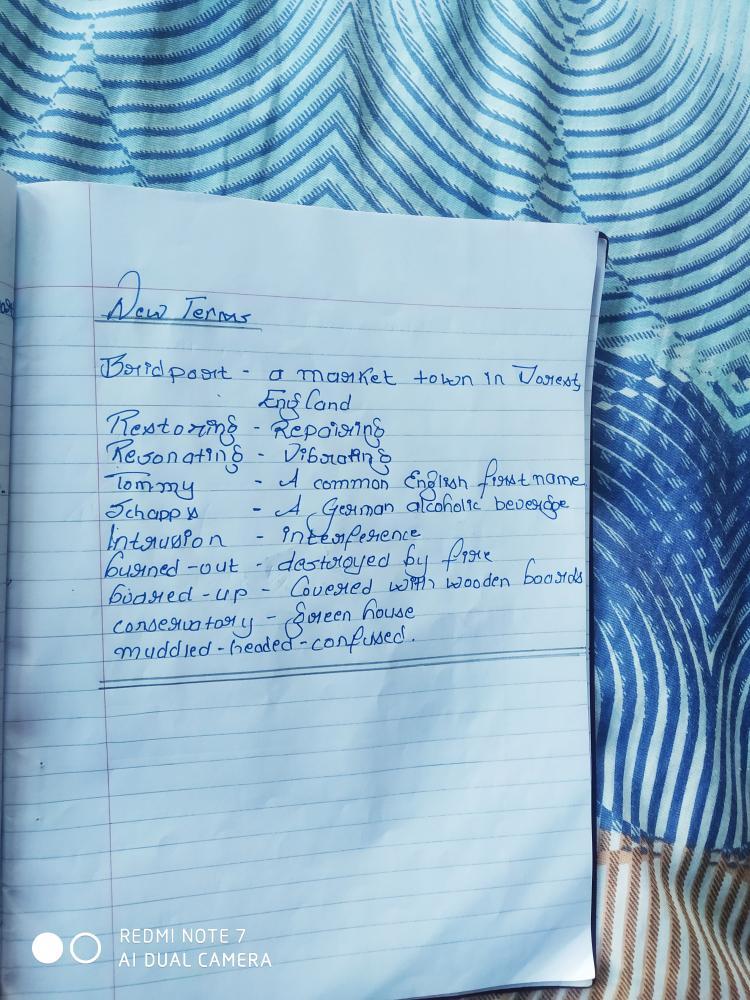 New Terms
Bridport - a market town in Dorest,
England
Restoring - Repairing
Resonating - Vibrating
Tommy - A common English first name
Schapps - A German alcoholic beverage
Intrusion - interference
burned-out - destroyed by fire
boared-up - Covered with wooden boards
conservatory - Green house
muddled-headed-confused.
REDMI NOTE 7
AI DUAL CAMERA